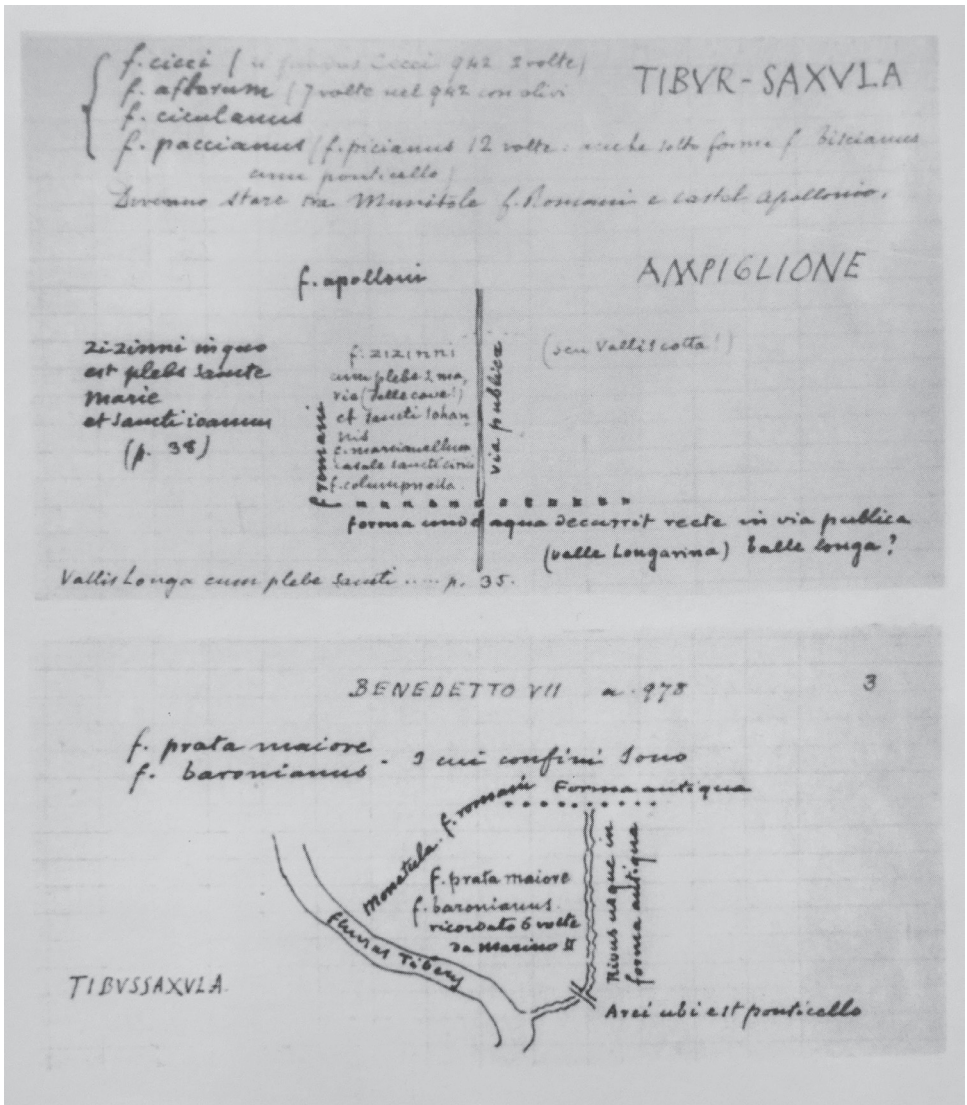 f. cicci ( Cicci 942 2 volte)
TIBVR - SAXVLA
f. aflarum (7 volte nel 942 con olivi
f. ciculanus
f. paccianus (f. picianus 12 volte. anche sotto forma f. biscianus
cum ponticello)
Dovevano stare tra Munitole f. Romani e castel Apollonio.
AMPIGLIONE
f. apolloni
zizinni in quo
est plebs sancte
marie
et sancti ioannis
(p. 38)
f. romani
f. zizinni
cum plebe S ma
rie (delle cave!)
et Sancti Iohan
nis
c. marcianellum
casale sancti
f. columpnella.
via publica
(seu Valliscotta!)
forma unde aqua decurrit recte in via publica
(valle Longarina) Valle longa?
Vallis Longa cum plebe sancti ..... p. 35.
BENEDETTO VII a. 978
3
f. prata maiore
f. baronianus - I cui confini sono
Monatula. f. romani
Forma antiqua
f. prata maiore
f. baronianus.
ricordato 6 volte
da Marino II
fluvius Tibery
Rivus usque in
forma antiqua
TIBVSSAXVLA.
Arci ubi est ponticello